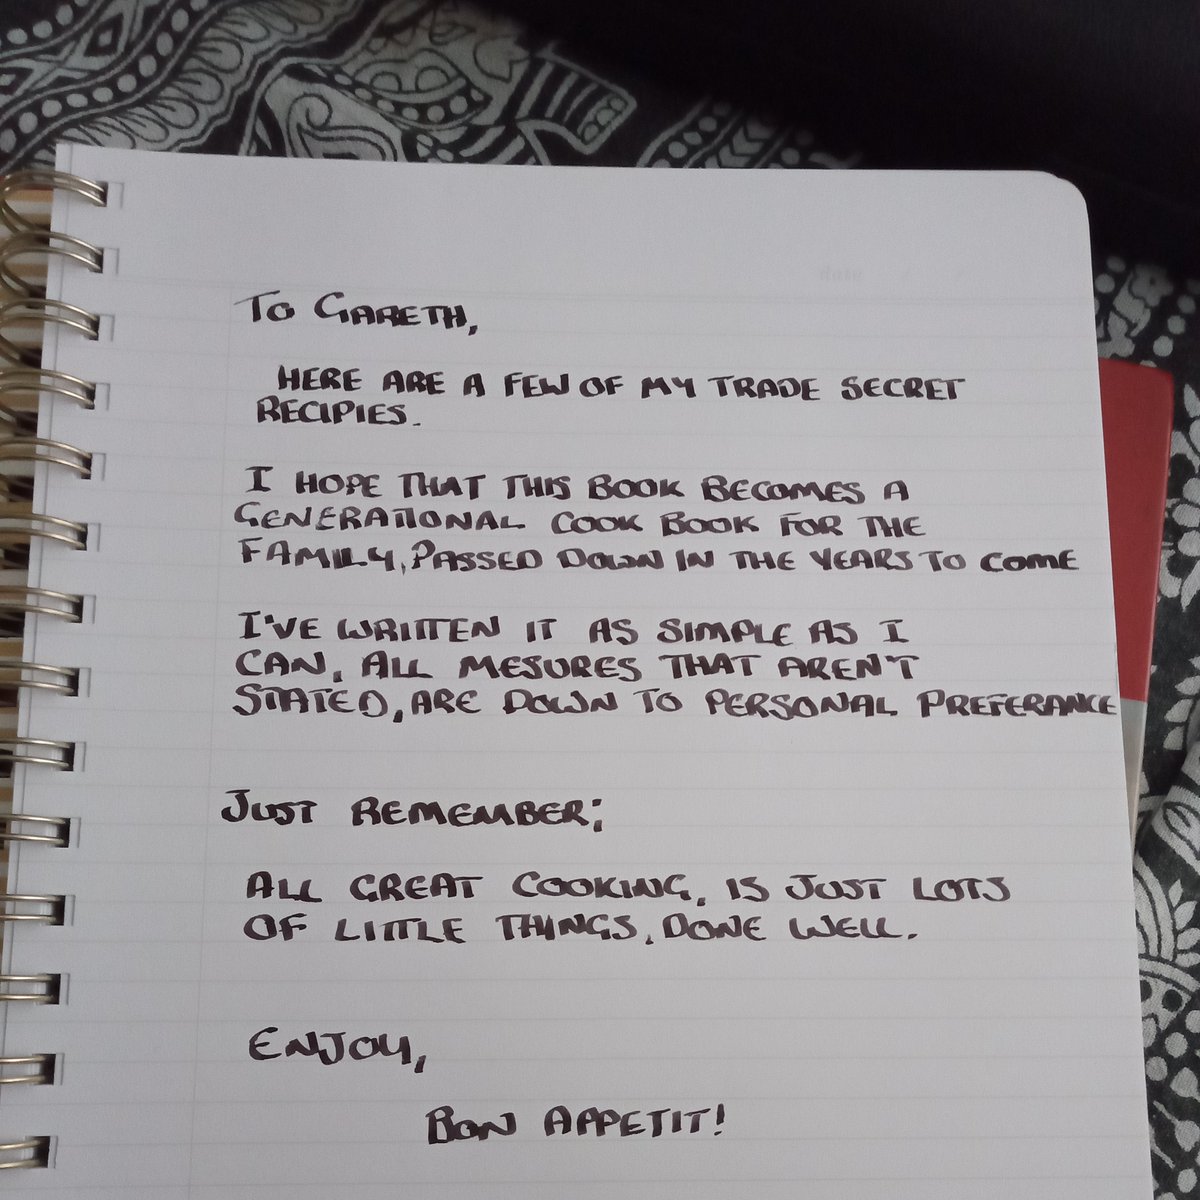 date / /
To GARETH,
HERE ARE A FEW OF MY TRADE SECRET
RECIPIES.
I HOPE THAT THIS BOOK BECOMES A
GENERATIONAL COOK BOOK FOR THE
FAMILY, PASSED DOWN IN THE YEARS TO COME
I'VE WRITTEN IT AS SIMPLE AS I
CAN, ALL MESURES THAT AREN'T
STATED, ARE DOWN TO PERSONAL PREFERANCE
JUST REMEMBER;
ALL GREAT COOKING, IS JUST LOTS
OF LITTLE THINGS, DONE WELL.
ENJOY,
BON APPETIT!